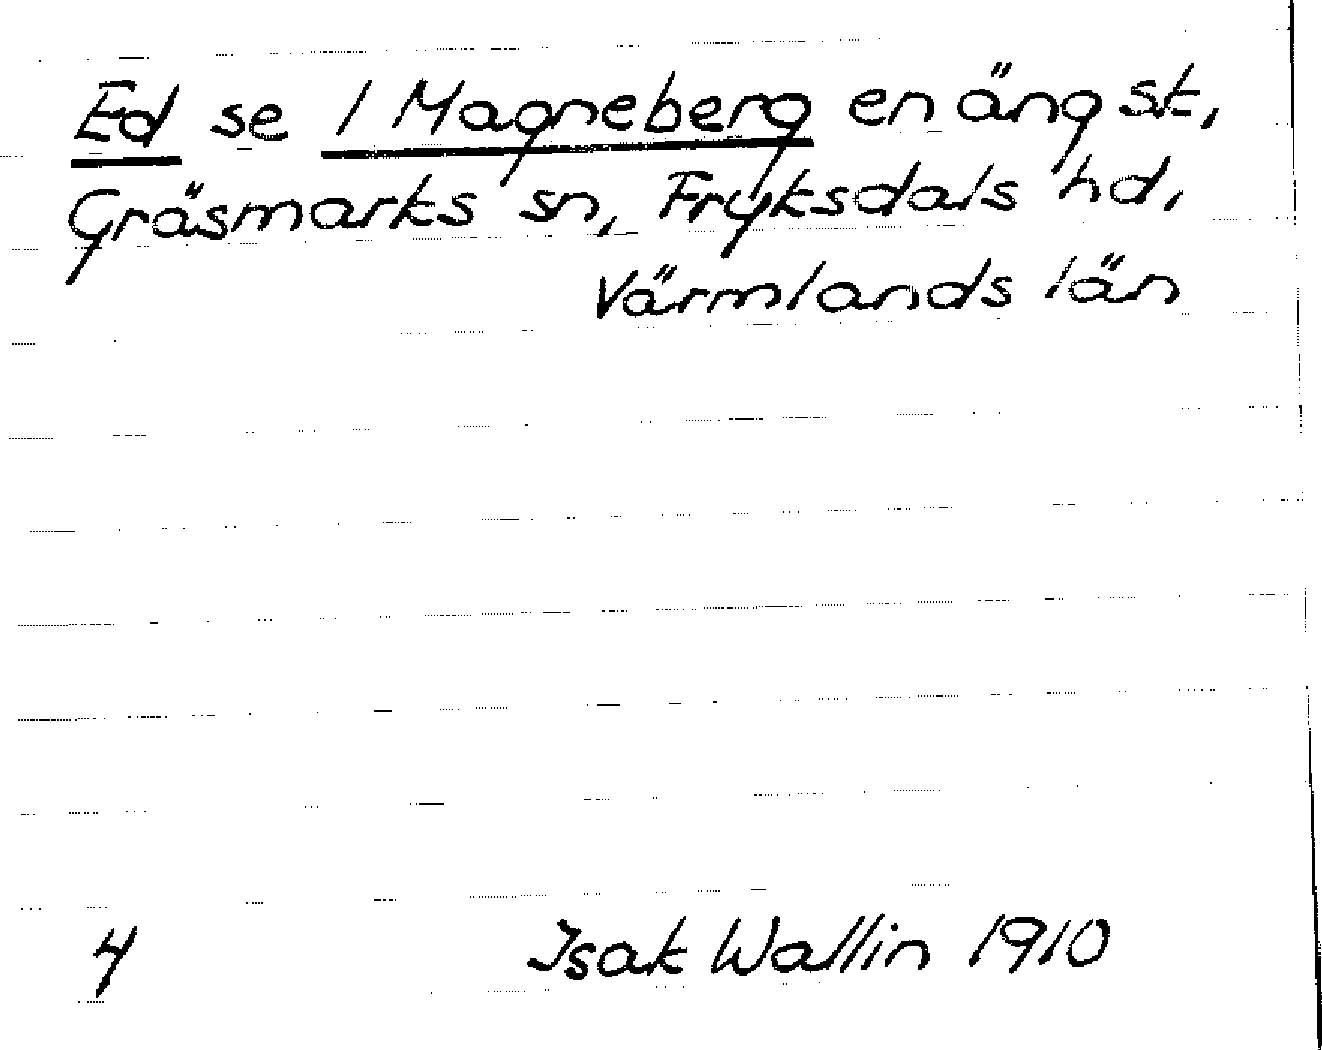 Ed se 1 Magneberg en ängst,
Gräsmarks sn, Fryksdals hd,
Värmlands län
4 Isak Wallin 1910